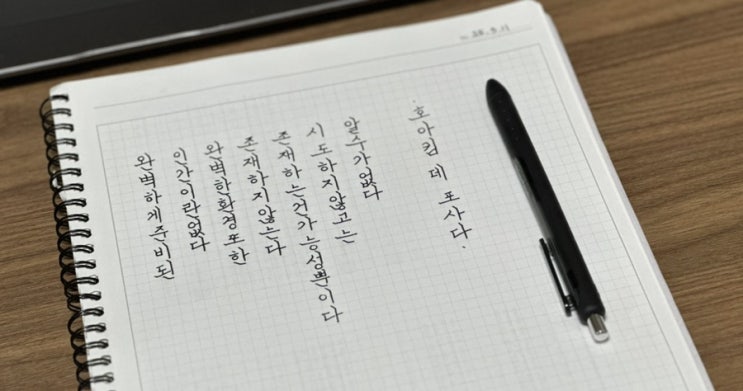 완벽하게준비된
인간이란없다
완벽한환경또한
존재하지않는다
존재하는건가능성뿐이다
시도하지않고는
알수가없다
·호아킴 데 포사다·